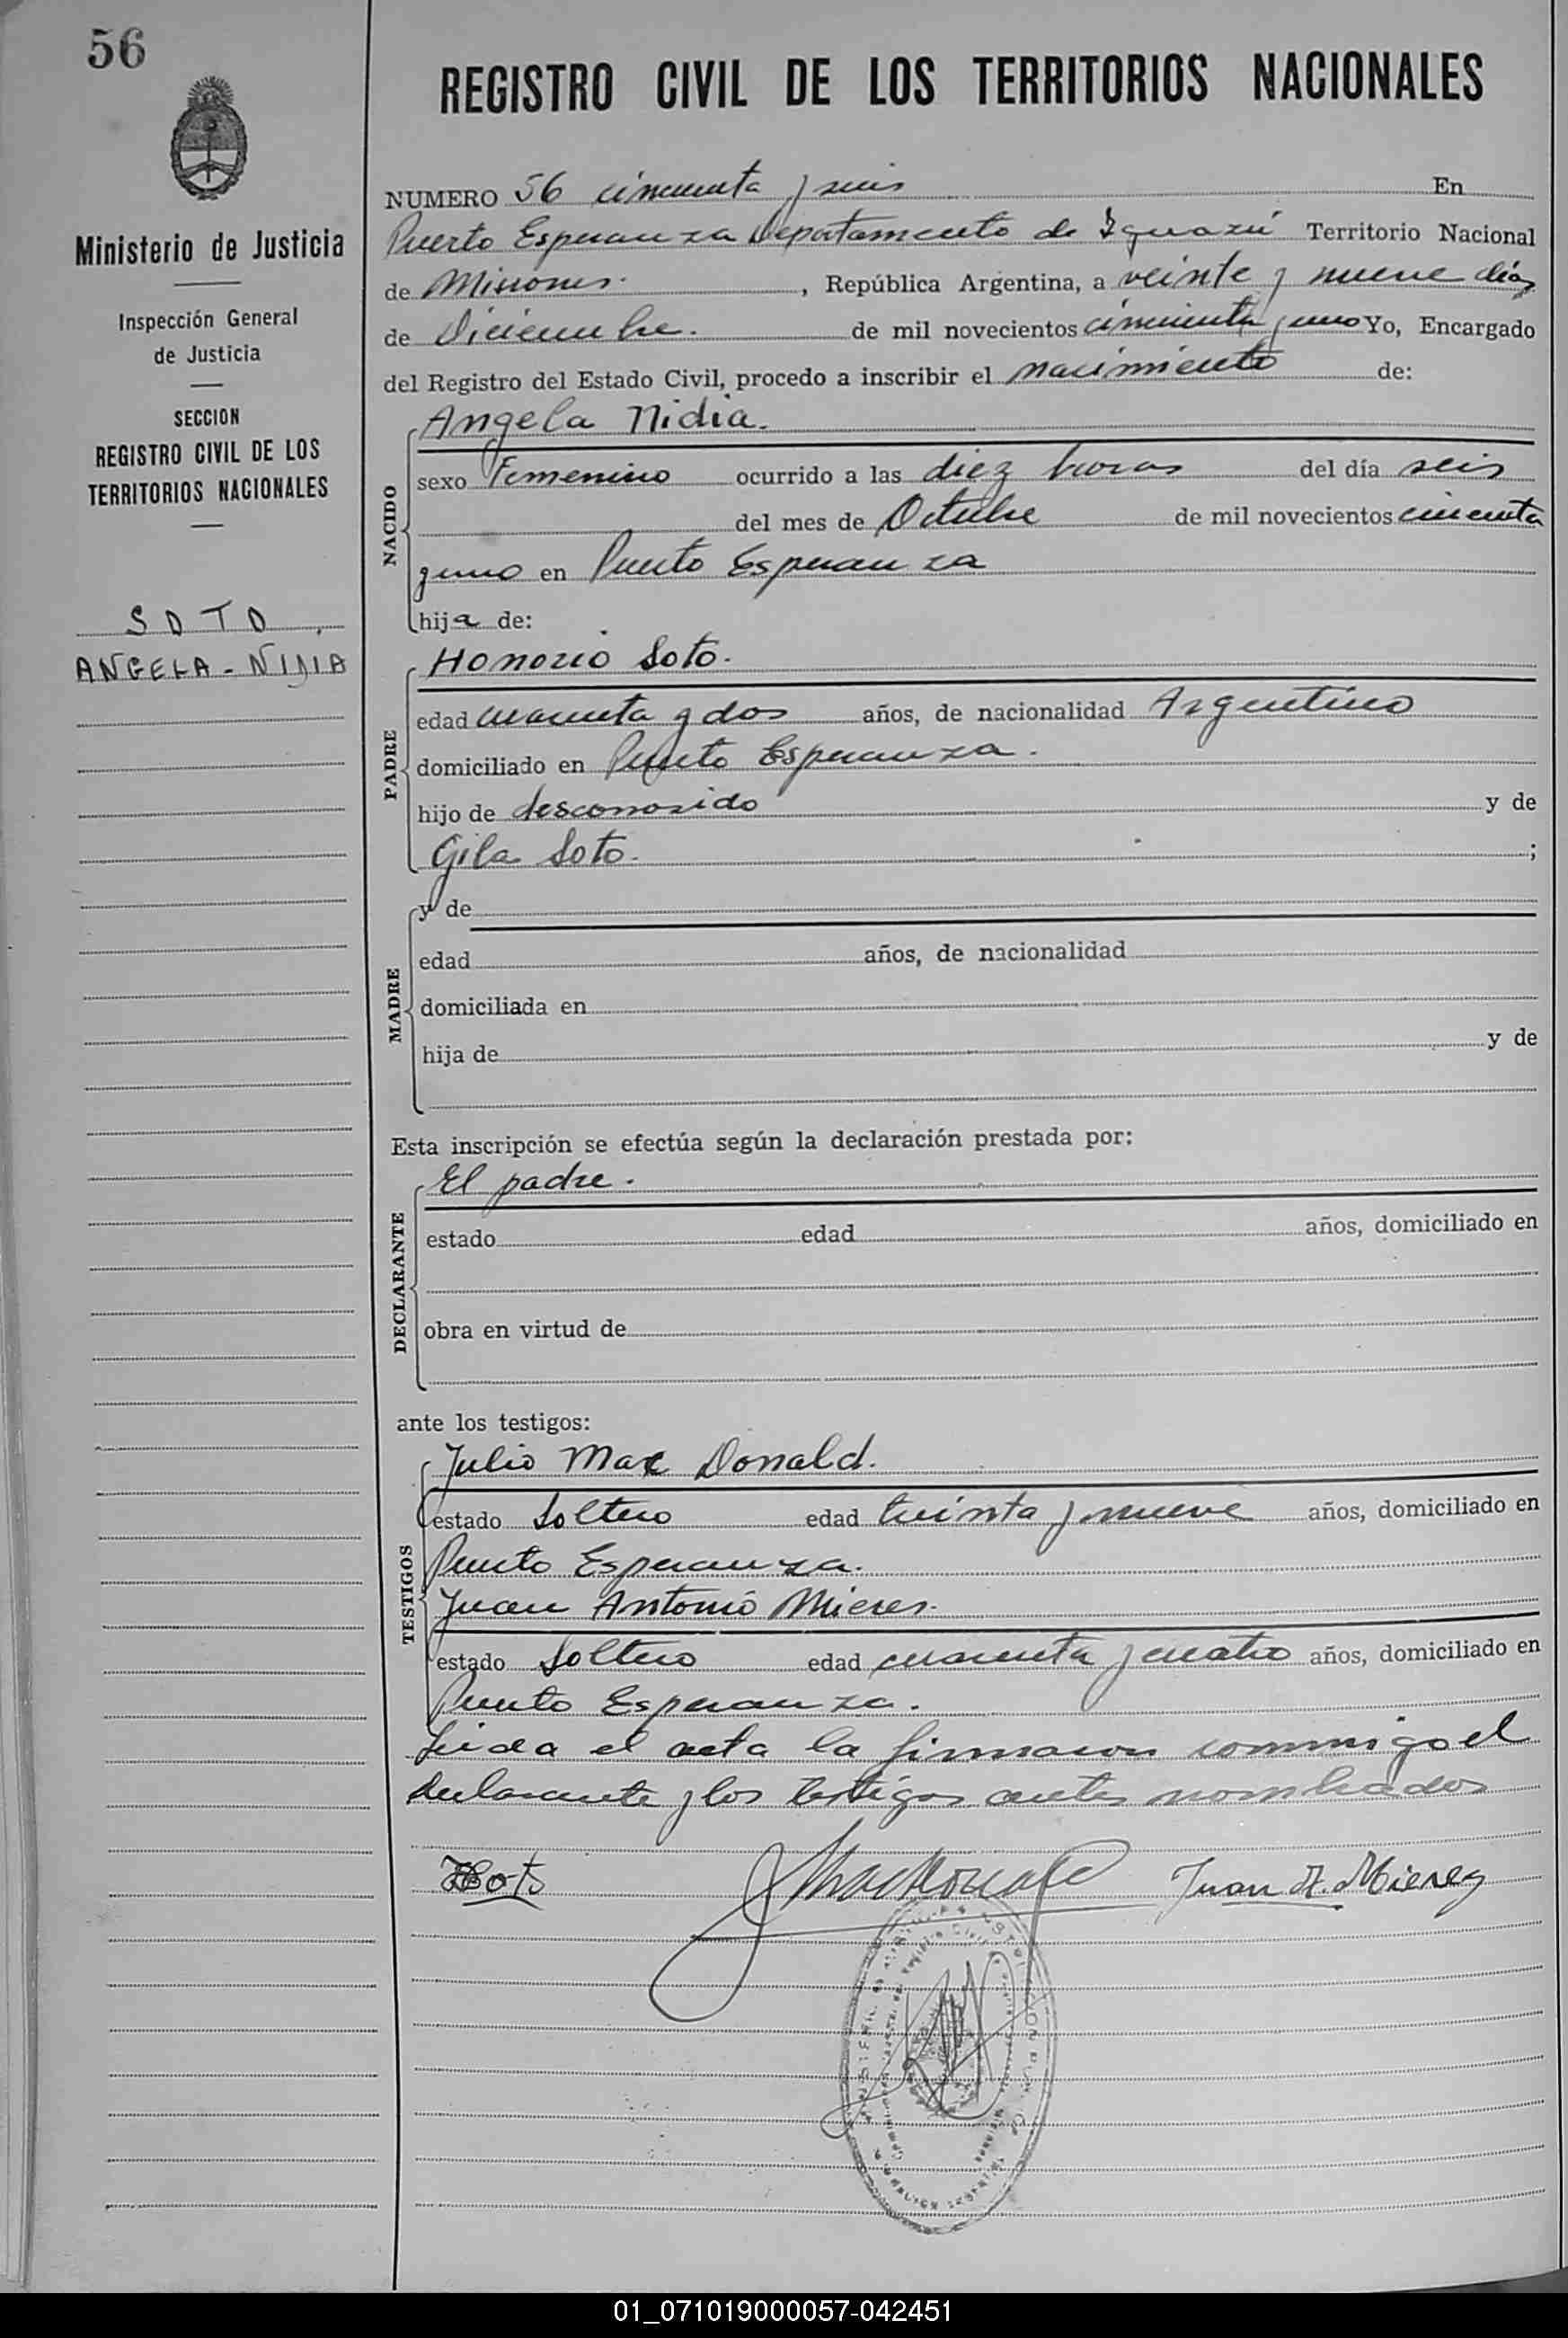 56
Ministerio de Justicia
Inspección General
de Justicia
SECCION
REGISTRO CIVIL DE LOS
TERRITORIOS NACIONALES
SOTO,
ANGELA-NIDIA
REGISTRO CIVIL DE LOS TERRITORIOS NACIONALES
NUMERO 56 cincuenta y seis En
Puerto Esperanza Departamento de Iguazú Territorio Nacional
de Misiones. , República Argentina, a veinte y nueve días
de Diciembre. de mil novecientos cincuenta y uno Yo, Encargado
del Registro del Estado Civil, procedo a inscribir el nacimiento de:
NACIDO
Angela Nidia.
sexo Femenino ocurrido a las diez horas del día seis
del mes de Octubre de mil novecientos cincuenta
y uno en Puerto Esperanza
hija de:
PADRE
Honorio Soto.
edad cuarenta y dos años, de nacionalidad Argentino
domiciliado en Puerto Esperanza.
hijo de desconosido y de
Gila Soto. ;
MADRE
y de
edad años, de nacionalidad
domiciliada en
hija de y de
Esta inscripción se efectúa según la declaración prestada por:
DECLARANTE
El padre.
estado edad años, domiciliado en
obra en virtud de
ante los testigos:
TESTIGOS
Julio Mac Donald.
estado Soltero edad treinta y nueve años, domiciliado en
Puerto Esperanza.
Juan Antonio Mieres.
estado Soltero edad cuarenta y cuatro años, domiciliado en
Puerto Esperanza.
Leida el acta la firmaron conmigo el
declarante y los testigos antes nombrados
HSoto JMacDonald Juan A. Mierez
01_071019000057-042451